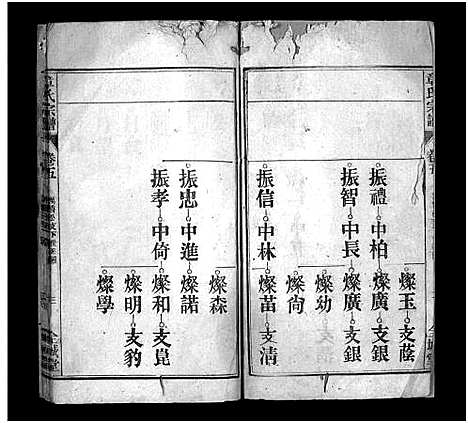 章氏宗譜
卷五
燦玉 支蔭
振禮 中柏 燦廣 支銀
振智 中長 燦廣 支銀
燦幼
燦尙
振信 中林 燦苗 支清
燦森
振忠 中進 燦諾
振孝 中倚 燦和 支崑
燦明 支豹
燦學
章氏宗譜
卷五
全城堂